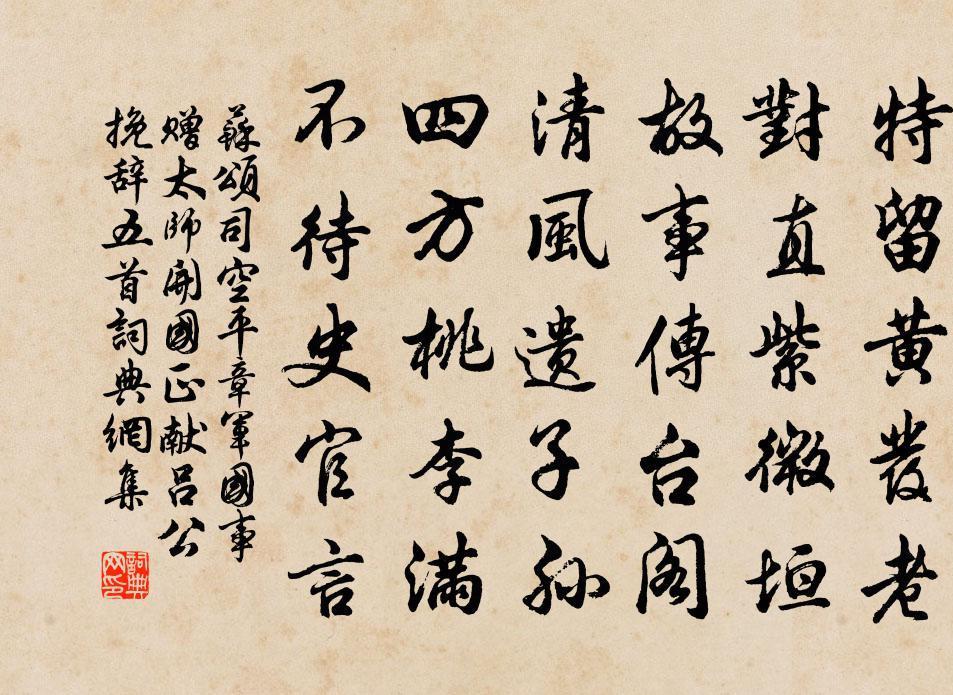 特留黄發老
對直紫微垣
故事傳台阁
清風遗子孫
四方桃李满
不待史官言
蘇頌司空平章軍國事
赠太师開國正献吕公
挽辞五首詞典網集
詞典
网印